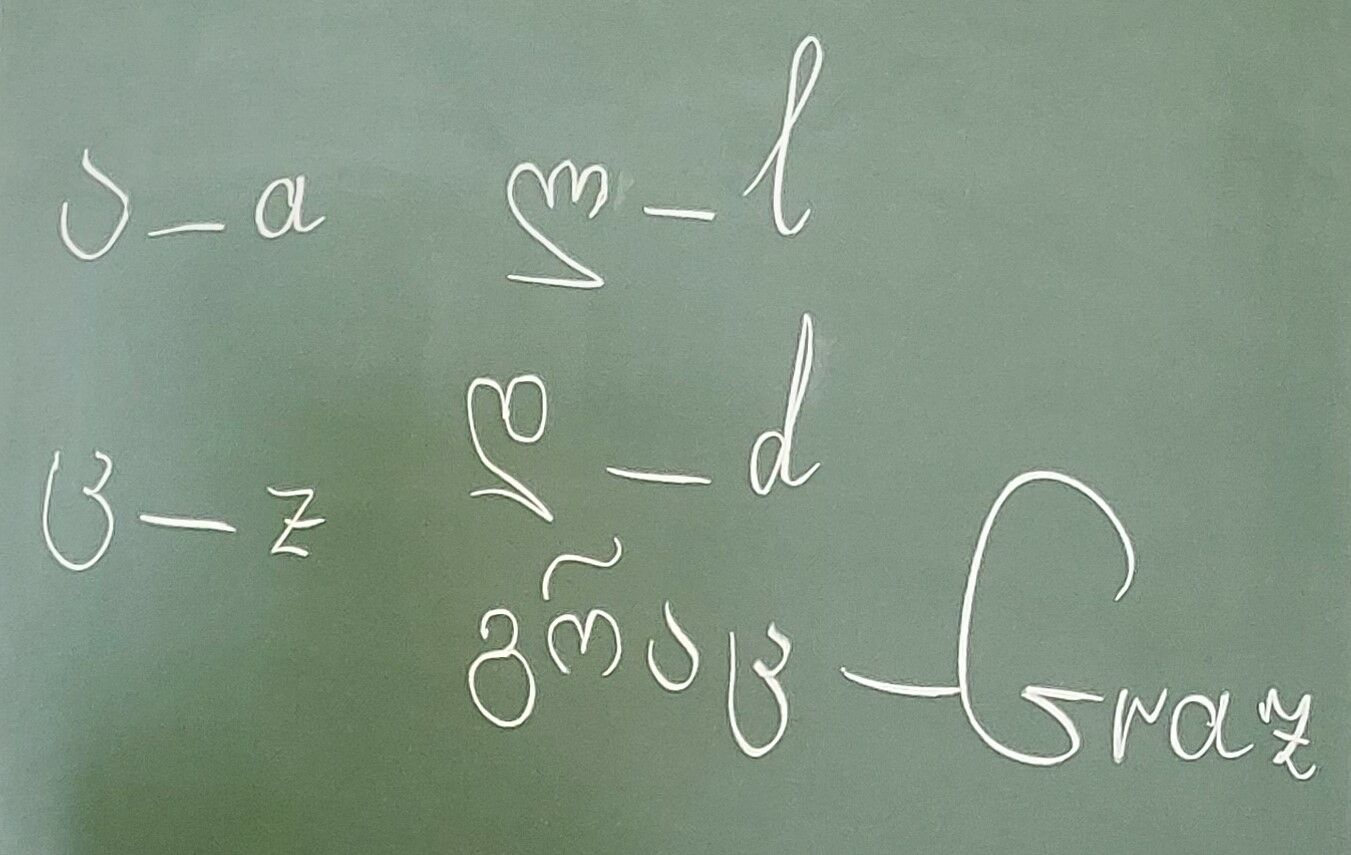 ა – a ლ – l
ც – z დ – d
გრაც – Graz